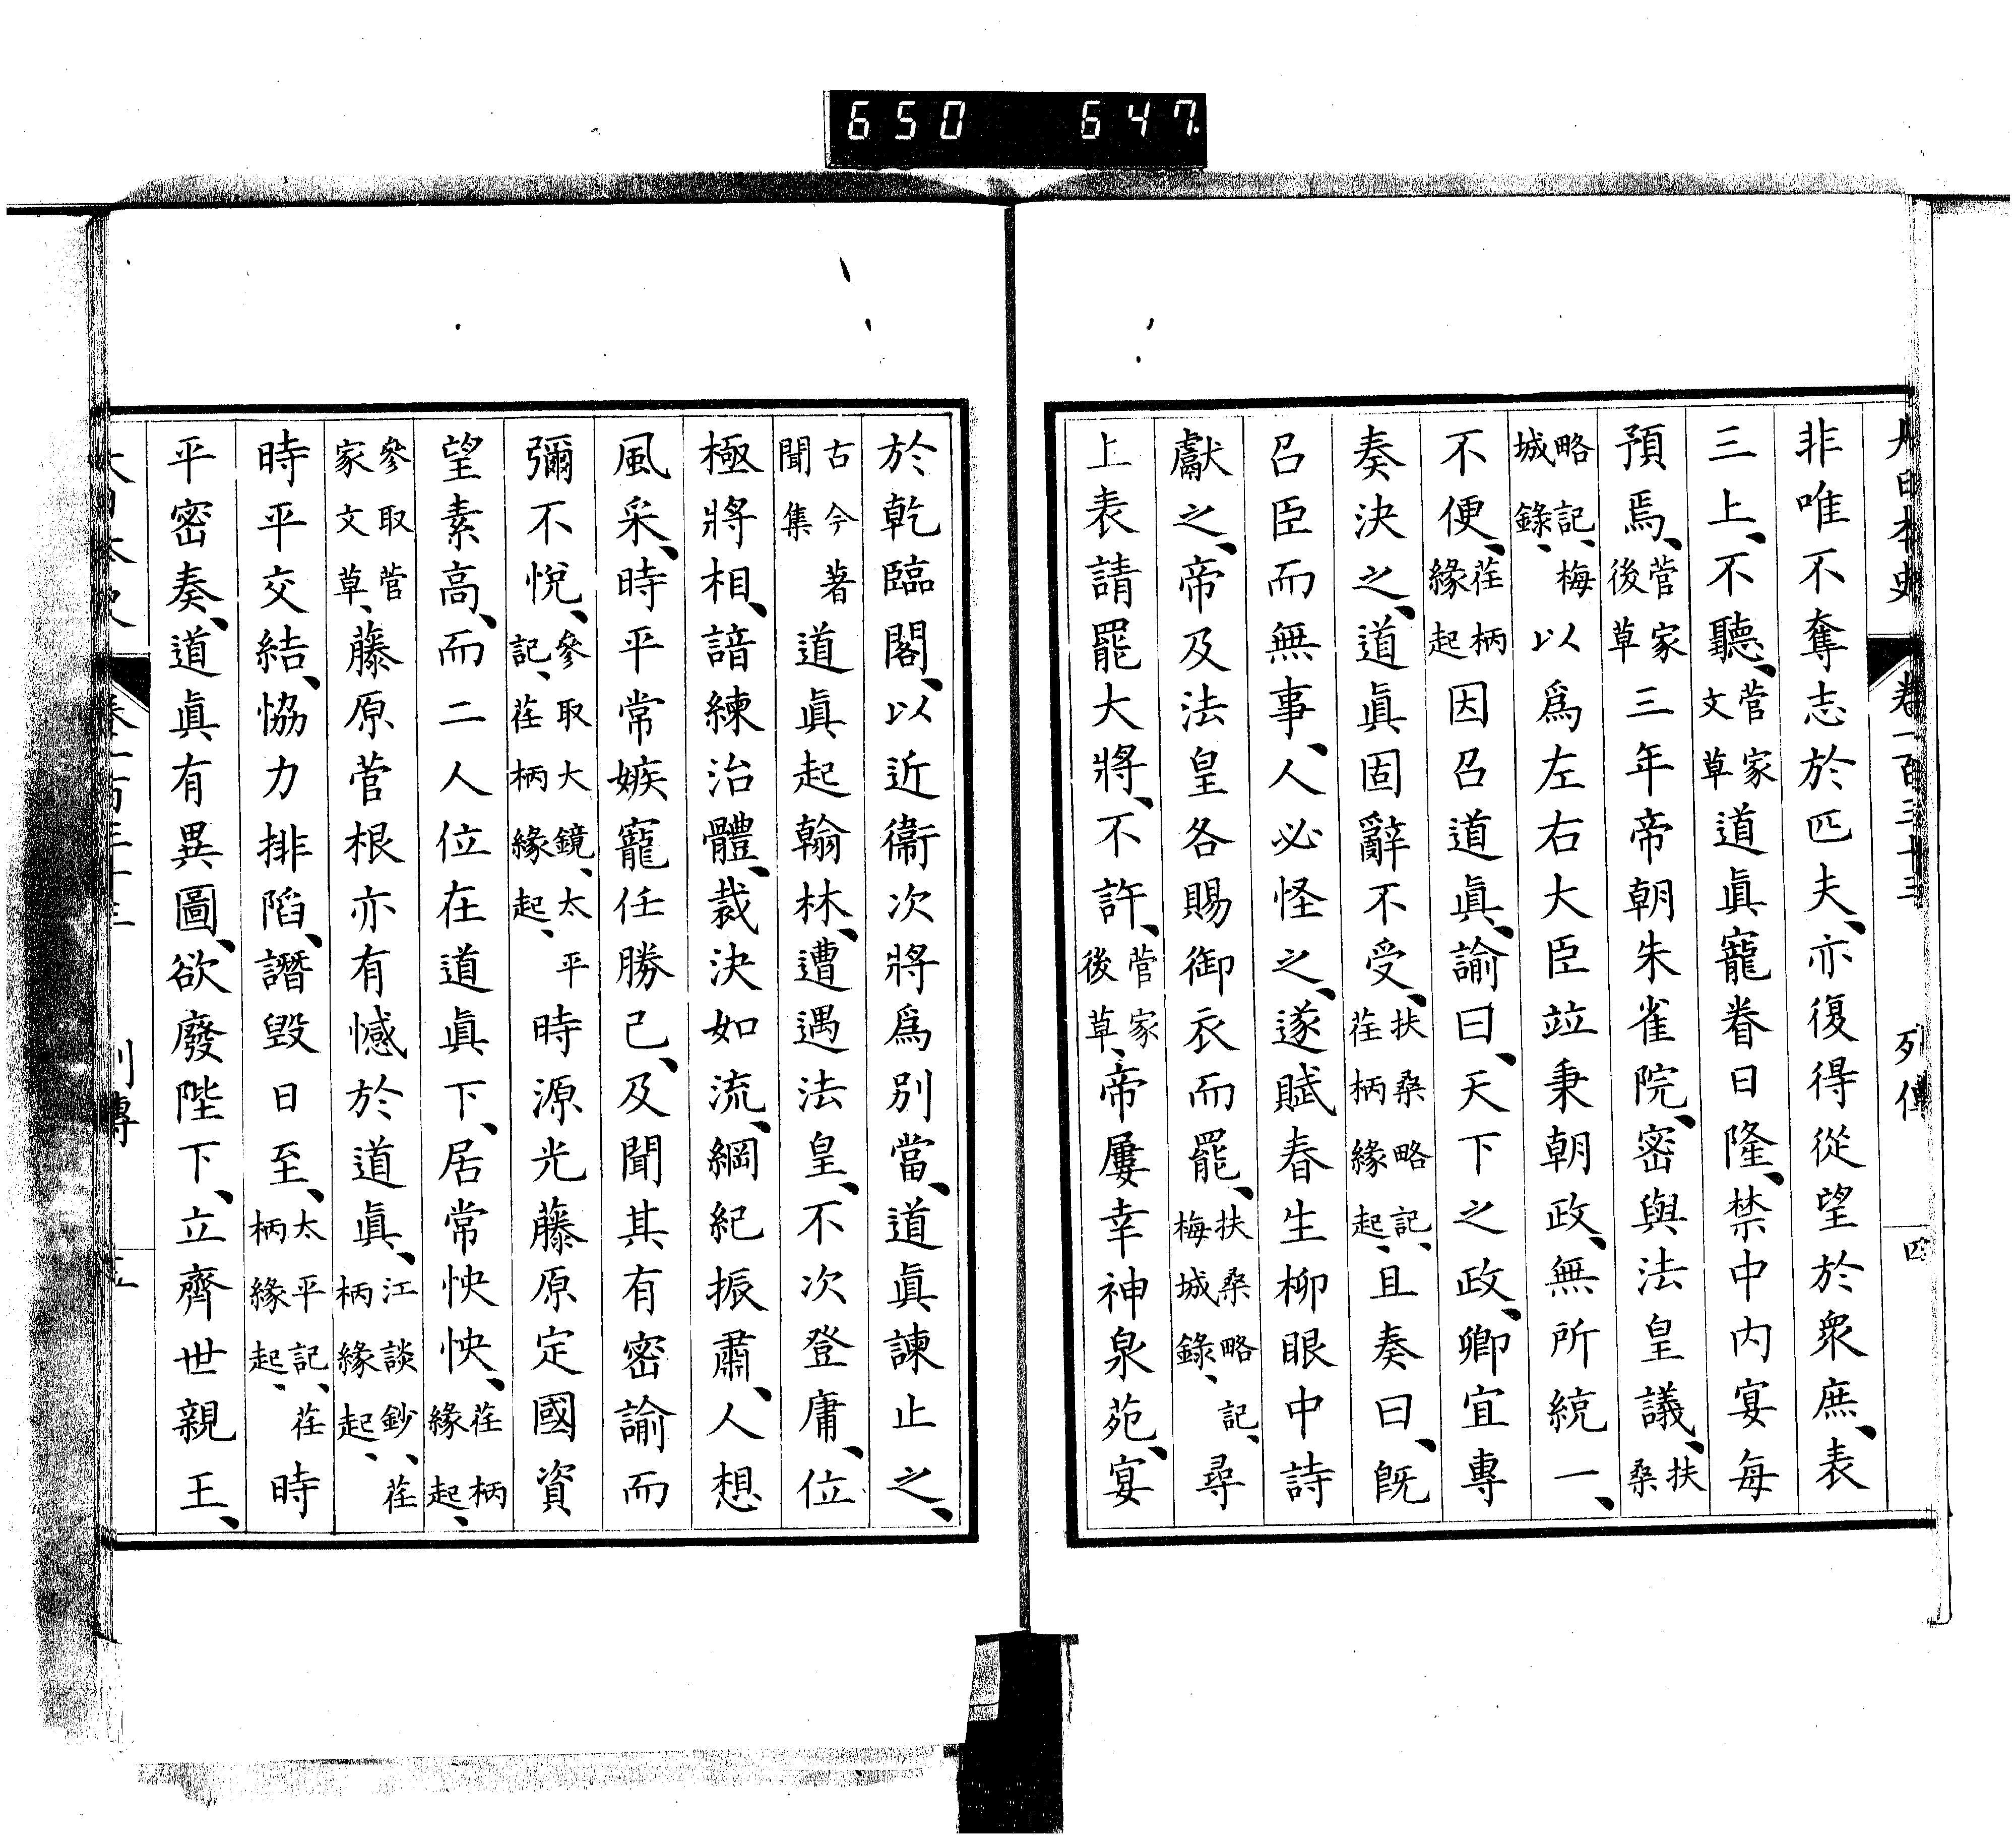 650 647.
大日本史 卷一百三十三 列傳 四
非唯不奪志於匹夫、亦復得從望於衆庶、表
三上、不聽、菅家文草道眞寵眷日隆、禁中内宴每
預焉、菅家後草三年帝朝朱雀院、密與法皇議、扶桑
略記、梅城錄、以爲左右大臣竝秉朝政、無所統一、
不便、荏柄緣起因召道眞、諭曰、天下之政、卿宜專
奏決之、道眞固辭不受、扶桑略記、荏柄緣起、且奏曰、既
召臣而無事、人必怪之、遂賦春生柳眼中詩
獻之、帝及法皇各賜御衣而罷、扶桑略記、梅城錄、尋
上表請罷大將、不許、菅家後草、帝屢幸神泉苑、宴
於乾臨閣、以近衞次將爲別當、道眞諫止之、
古今著聞集道眞起翰林、遭遇法皇、不次登庸、位
極將相、諳練治體、裁決如流、綱紀振肅、人想
風采、時平常嫉寵任勝己、及聞其有密諭而
彌不悅、參取大鏡、太平記、荏柄緣起、時源光藤原定國資
望素高、而二人位在道眞下、居常怏怏、荏柄緣起、
參取菅家文草、藤原菅根亦有憾於道眞、江談鈔、荏柄緣起、
時平交結、恊力排陷、譖毀日至、太平記、荏柄緣起、時
平密奏、道眞有異圖、欲廢陛下、立齊世親王、
列傳